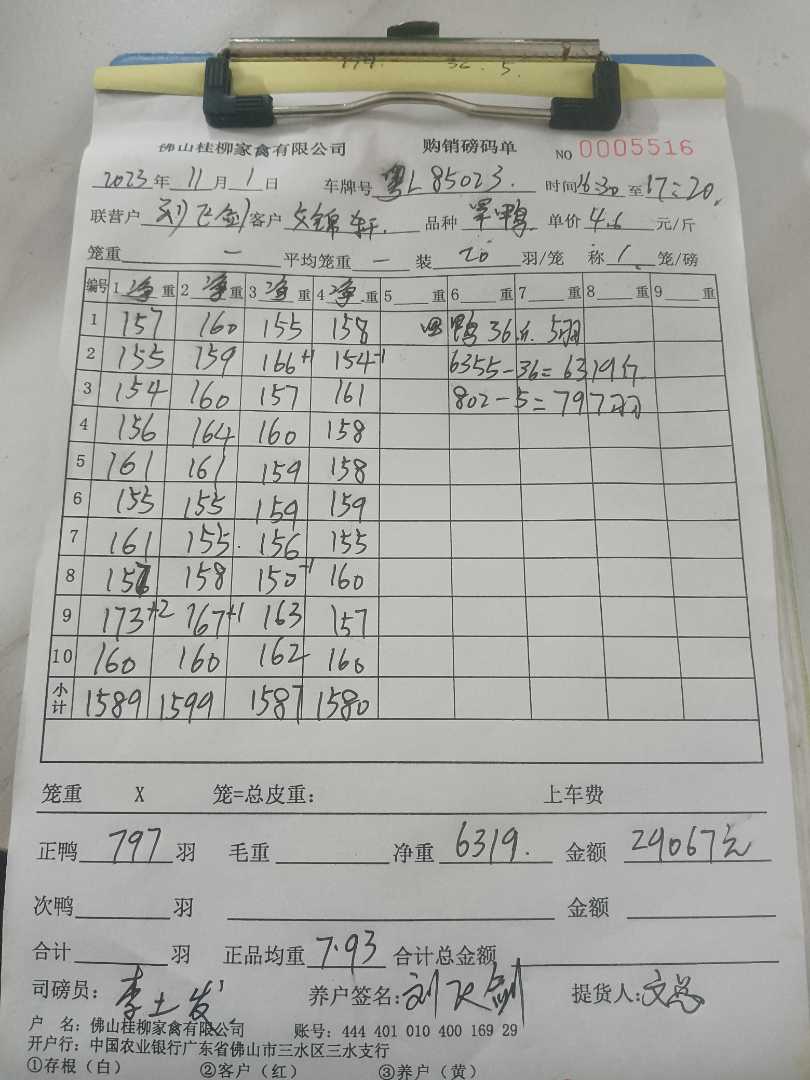 174. 36. 5.
佛山桂柳家禽有限公司 购销磅码单 NO 0005516
2023年 11月 1日 车牌号 粤L85023. 时间16:30至17:20.
联营户 刘飞剑 客户 文锦轩. 品种 单价 4.6 元/斤
笼重 — 平均笼重 — 装 20 羽/笼 称 1. 笼/磅
编号 1 净 重 2 净 重 3 净 重 4 净 重 5 重 6 重 7 重 8 重 9 重
1 157 160 155 158 鸭 36斤. 5羽
2 155 159 166+1 154-1 6355-36=6319斤.
3 154 160 157 161 802-5=797羽
4 156 164 160 158
5 161 161 159 158
6 155 155 159 159
7 161 155. 156 155
8 157 158 150-1 160
9 173+2 167+1 163 157
10 160 160 162 160
小计 1589 1599 1587 1580
笼重 X 笼=总皮重: 上车费
正鸭 797 羽 毛重 净重 6319. 金额 29067元
次鸭 羽 金额
合计 羽 正品均重 7.93 合计总金额
司磅员: 李土发 养户签名: 刘飞剑 提货人: 文总
户 名: 佛山桂柳家禽有限公司 账号: 444 401 010 400 169 29
开户行: 中国农业银行广东省佛山市三水区三水支行
①存根(白) ②客户(红) ③养户(黄)